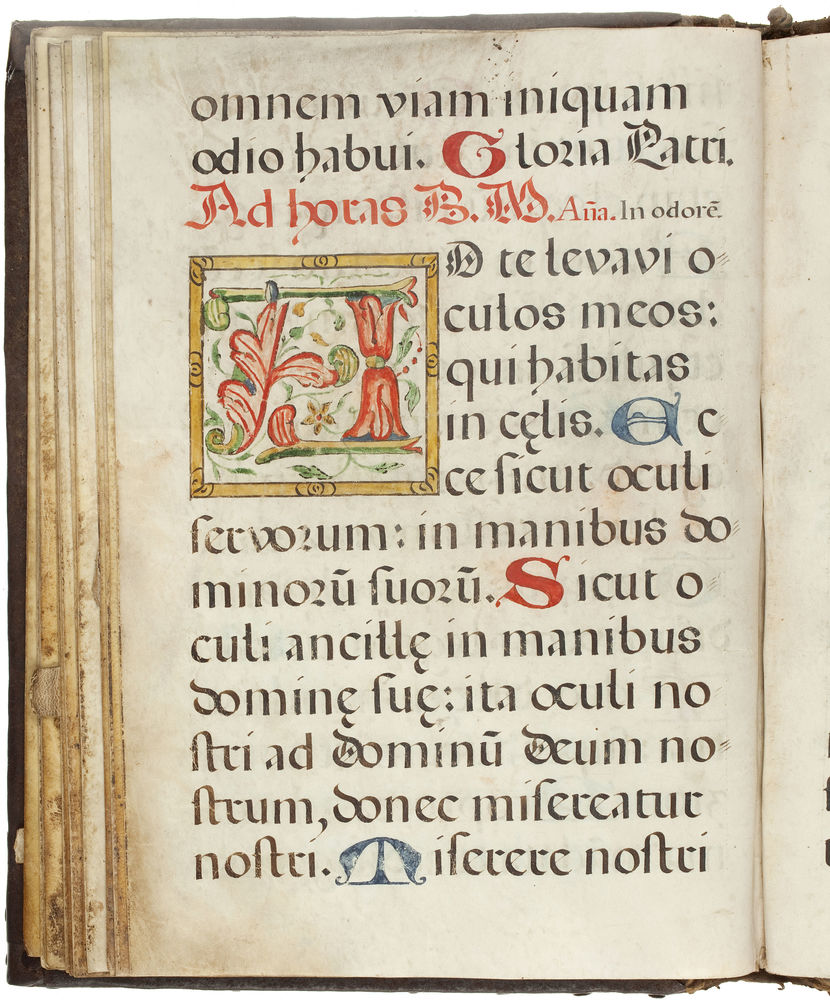 omnem viam iniquam
odio habui. Gloria Patri.
Ad horas B. M. Aña. In odorē.
AD te levavi o=
culos meos:
qui habitas
in cęlis. Ec
ce ſicut oculi
ſervorum: in manibus do=
minorū ſuorū. Sicut o=
culi ancillę in manibus
dominę ſuę: ita oculi no
ſtri ad Dominū Deum no=
ſtrum, donec miſereatur
noſtri. Miſerere noſtri